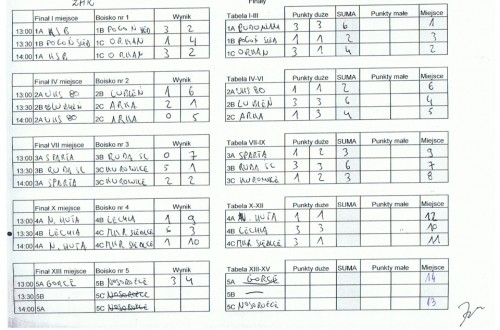 Finały
Finał I miejsce Boisko nr 1 Wynik
13:00 1A KSB 1B POGOŃ SIED 3 2
13:30 1B POGOŃ SIED 1C ORKAN 1 4
14:00 1A KSB 1C ORKAN 3 2
Tabela I-III Punkty duże SUMA Punkty małe Miejsce
1A 3 3 6 1
1B POGOŃ SIED 1 1 2 3
1C ORKAN 1 3 4 2
Finał IV miejsce Boisko nr 2 Wynik
13:00 2A UKS BO 2B LUBIEŃ 1 6
13:30 2B LUBIEŃ 2C ARKA 2 1
14:00 2A UKS BO 2C ARKA 0 5
Tabela IV-VI Punkty duże SUMA Punkty małe Miejsce
2A UKS BO 1 1 2 6
2B LUBIEŃ 3 3 6 4
2C ARKA 1 3 4 5
Finał VII miejsce Boisko nr 3 Wynik
13:00 3A SPARTA 3B RUDA SL 0 7
13:30 3B RUDA SL 3C HUROWICE 5 1
14:00 3A SPARTA 3C HUROWICE 2 2
Tabela VII-IX Punkty duże SUMA Punkty małe Miejsce
3A SPARTA 1 2 3 9
3B RUDA SL 3 3 6 7
3C HUROWICE 1 2 3 8
Finał X miejsce Boisko nr 4 Wynik
13:00 4A N. HUTA 4B LECHIA 1 9
13:30 4B LECHIA 4C MKR SIEDLCE 6 3
14:00 4A N. HUTA 4C MKR SIEDLCE 1 10
Tabela X-XII Punkty duże SUMA Punkty małe Miejsce
4A N. HUTA 1 1 12
4B LECHIA 3 3 10
4C MKR SIEDLCE 1 3 11
Finał XIII miejsce Boisko nr 5 Wynik
13:00 5A GORCE 5B 3 4
13:30 5B 5C
14:00 5A 5C
Tabela XIII-XV Punkty duże SUMA Punkty małe Miejsce
5A GORCE 14
5B —
5C 13